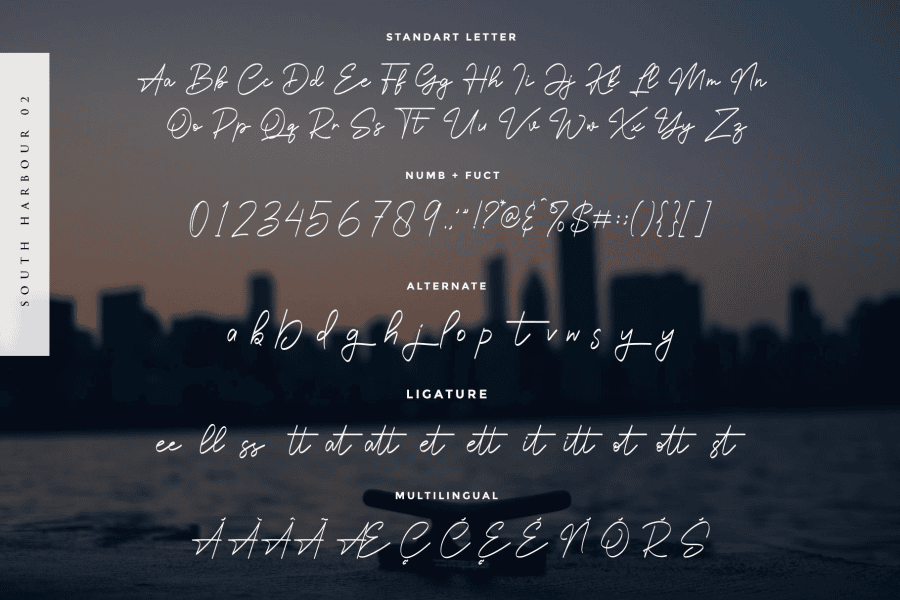 SOUTH HARBOUR 02
STANDART LETTER
Aa Bb Cc Dd Ee Ff Gg Hh Ii Jj Kk Ll Mm Nn
Oo Pp Qq Rr Ss Tt Uu Vv Ww Xx Yy Zz
NUMB + FUCT
0123456789.,'"!?*@&^%$#:;(){}[]
ALTERNATE
a b D d g h j l o p t v w s y y
LIGATURE
ee ll ss tt at att et ett it itt ot ott st
MULTILINGUAL
Á À Â Ã Æ Ç Ć Ę É Ń Ó Ŕ Ś